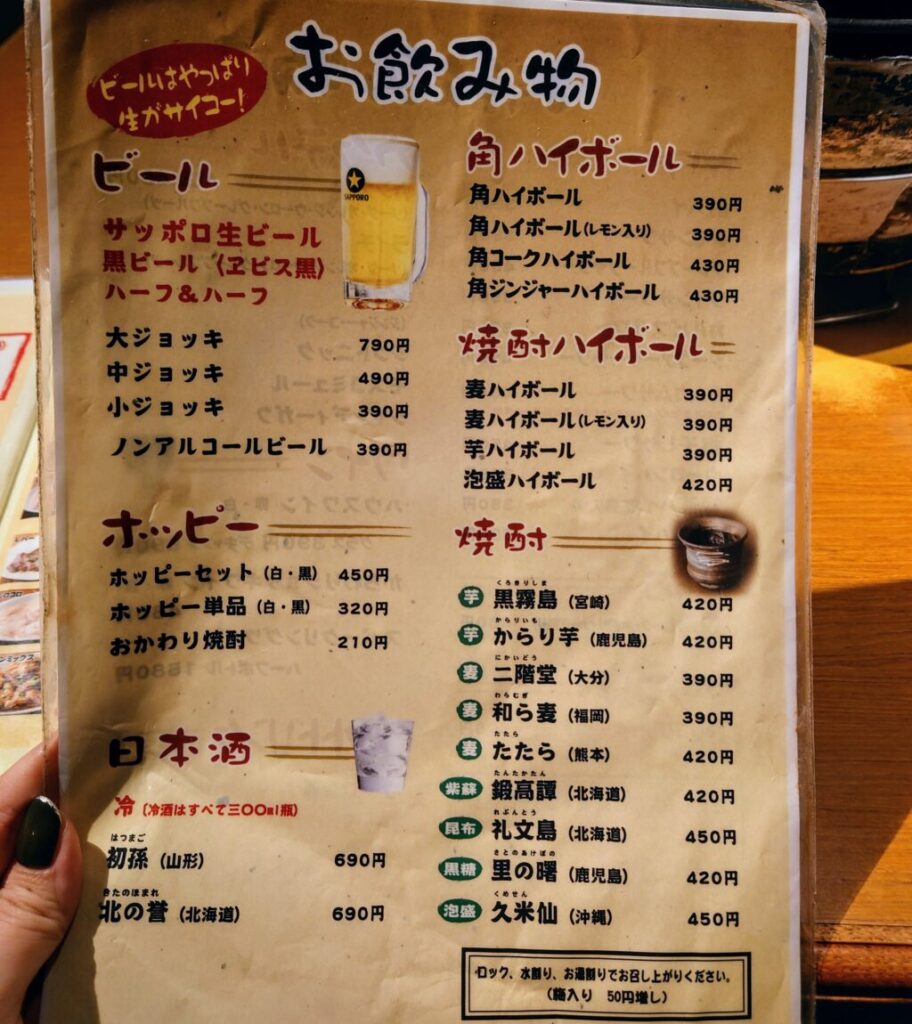 お飲み物
ビールはやっぱり
生がサイコー!
ビール
SAPPORO
サッポロ生ビール
黒ビール〈ヱビス黒〉
ハーフ&ハーフ
大ジョッキ 790円
中ジョッキ 490円
小ジョッキ 390円
ノンアルコールビール 390円
ホッピー
ホッピーセット(白・黒) 450円
ホッピー単品(白・黒) 320円
おかわり焼酎 210円
日本酒
冷(冷酒はすべて三〇〇ml瓶)
はつまご
初孫(山形) 690円
きたのほまれ
北の誉(北海道) 690円
角ハイボール
角ハイボール 390円
角ハイボール(レモン入り) 390円
角コークハイボール 430円
角ジンジャーハイボール 430円
焼酎ハイボール
麦ハイボール 390円
麦ハイボール(レモン入り) 390円
芋ハイボール 390円
泡盛ハイボール 420円
焼酎
くろきりしま
芋 黒霧島(宮崎) 420円
からりいも
芋 からり芋(鹿児島) 420円
にかいどう
麦 二階堂(大分) 390円
わらむぎ
麦 和ら麦(福岡) 390円
たたら
麦 たたら(熊本) 420円
たんたかたん
紫蘇 鍛高譚(北海道) 420円
れぶんとう
昆布 礼文島(北海道) 450円
さとのあけぼの
黒糖 里の曙(鹿児島) 420円
くめせん
泡盛 久米仙(沖縄) 450円
ロック、水割り、お湯割りでお召し上がりください。
(梅入り 50円増し)